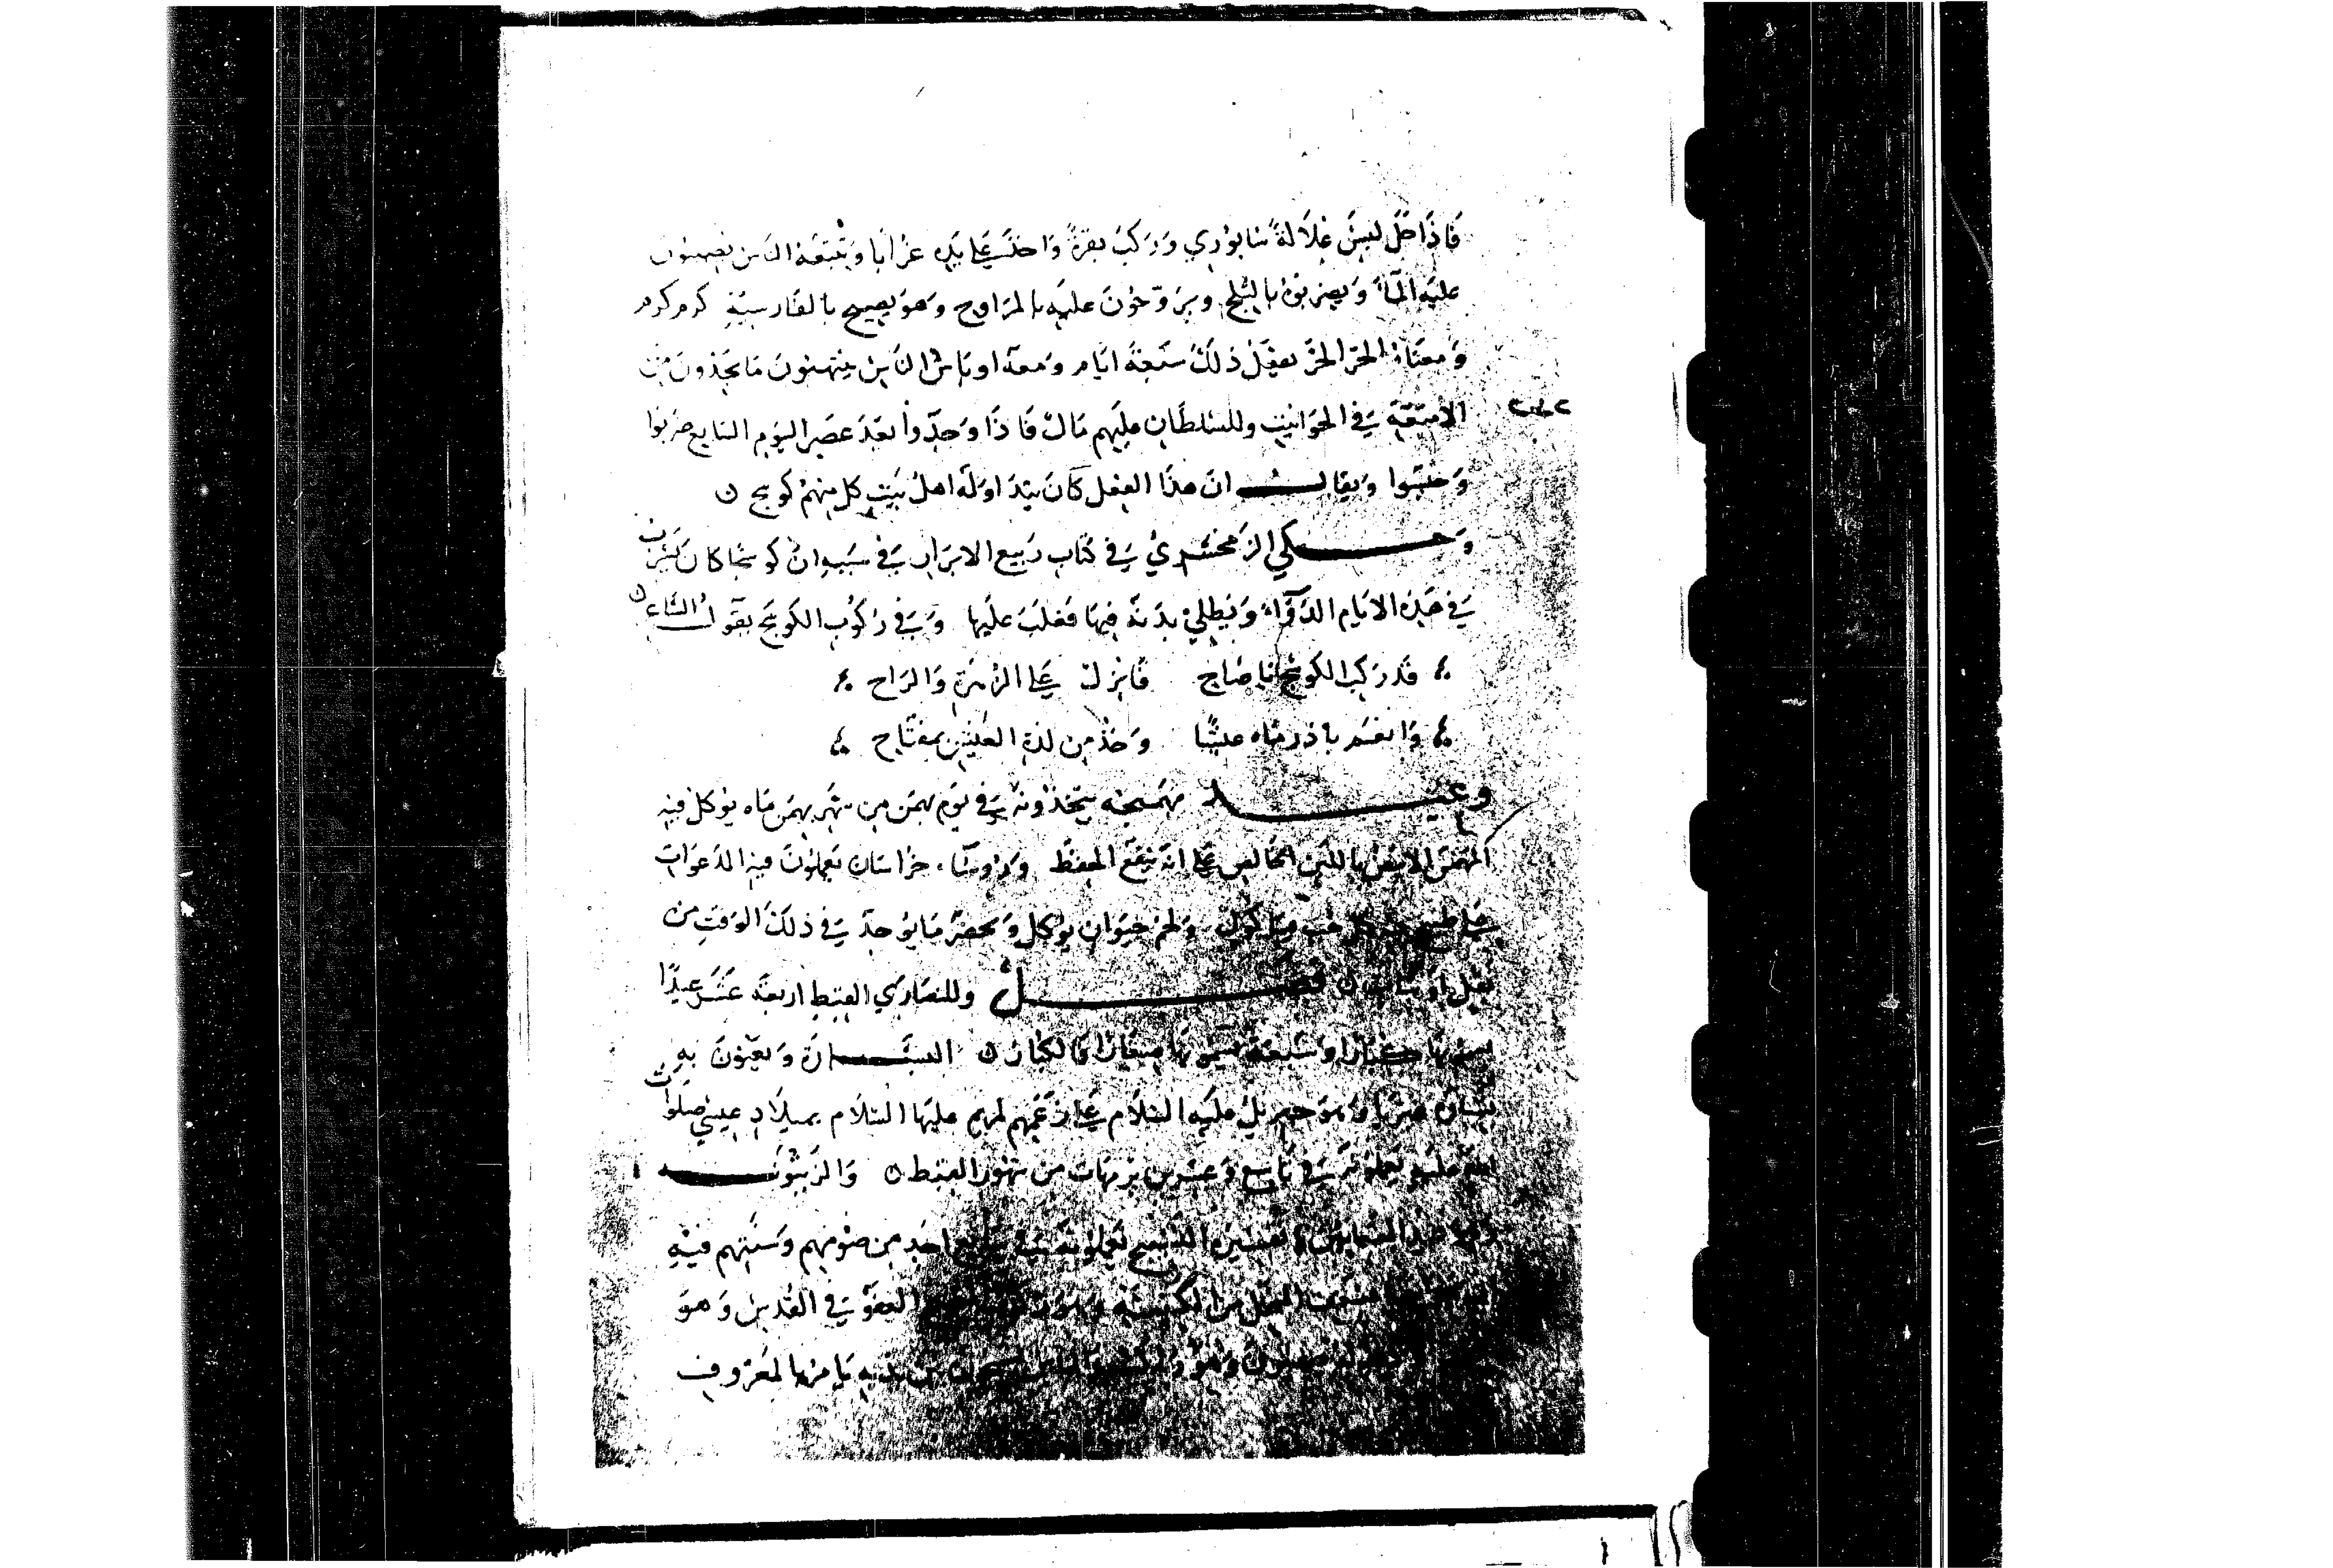 فَاذَا حَلَّ لبِسَ غِلَالَةً سَابُورِي وَرَكبَ بقرَةً وَاخذ عَلى يَدِه غرَابًا وَيَتْبَعُهُ النَاس يَصُبّونَ
عليَه المآءَ وَيضربُونهُ بالثلج ويرَوّحُونَ عليَهِ بالمرَاوح وَهوَ يصِيح بالفَارسيّةِ كرم كرم
وَمعنَاهُ الحرّ الحرّ يفعَلُ ذلكَ سَبعَةَ ايَّام وَمعهُ اوبَاش النَاسِ يَنهَبُونَ مَا يَجدُونَ مِن
الامتعَةِ فِي الحوَانيتِ وللسُلطَانِ عليَهم مَال فَاذَا وُجِدُوا بَعدَ عَصرِ اليَومِ السَابع ضرِبُوا
وَحُبسُوا وَيقال ان هذَا الفِعل كَانَ يتدَاوَلهُ اهل بَيتٍ كل منهم كوسج
وَحكي الزَمخشري فِي كتَاب رَبيع الابرَار فِي سَببهِ انّ كوسجًا كان يَشرَب
فِي هَذِهِ الايَامِ الدَوَآءَ وَيَطلِي بدَنهُ فيهَا فَغلبَ علَيها وَفِي رُكوُب الكوسَج يقَول الشَاعر
قَد رَكبَ الكوسَج يَا صَاح فَانزل عَلى الزهرَةِ وَالرَاح
وَانعَم باذر مَاه عيشًا وَخذ مِن لذةِ العَيشِ بمفتَاح
وعيد بهمنجه يتخذُونهُ فِي يَوم بهمَن مِن شهَر بهمَن مَاه يوكل فيهِ
البهمَن الابيَض باللبَن الخالص عَلى انهُ ينفعَ الحِفظ وَرُوسَاء خرَاسَان يَعملُونَ فيهِ الدَعوَات
عَلى وَلحم حيَوَان يوكل وَيحضرُ مَا يُوجَدُ فِي ذلكَ الوَقتِ مِن
بقل او نبات فصل وللنصَارَي القبط اربعَة عَشَرَ عيدًا
يسمونها كبارًا وَسَبعَة يسَمّونهَا صِغَارًا فَالكبار البشَارَة وَيعنُونَ بهِ
بشارَة وَهوَ جبريل عليَه السَلَام عَلى زَعمهم لمريَم عليهَا السَلَام بميلَادِ عيسَى صلوَات
اللهِ عليَه يَعملونهُ فِي تَاسع وَعشرين برمهَات مِن شهُور القبط وَالزَيتونه
وَهوَ عيد الشعانين وتفسيرُه التسبيح يَعملونهُ فِي سَابع احَد مِن صَومهم وَسنَتهم فيهِ
سعف النخل مِن الكنيسَةِ العفو فِي القُدس وَهوَ
وَهوَ بين يَديهِ يَامر بالمَعرُوف